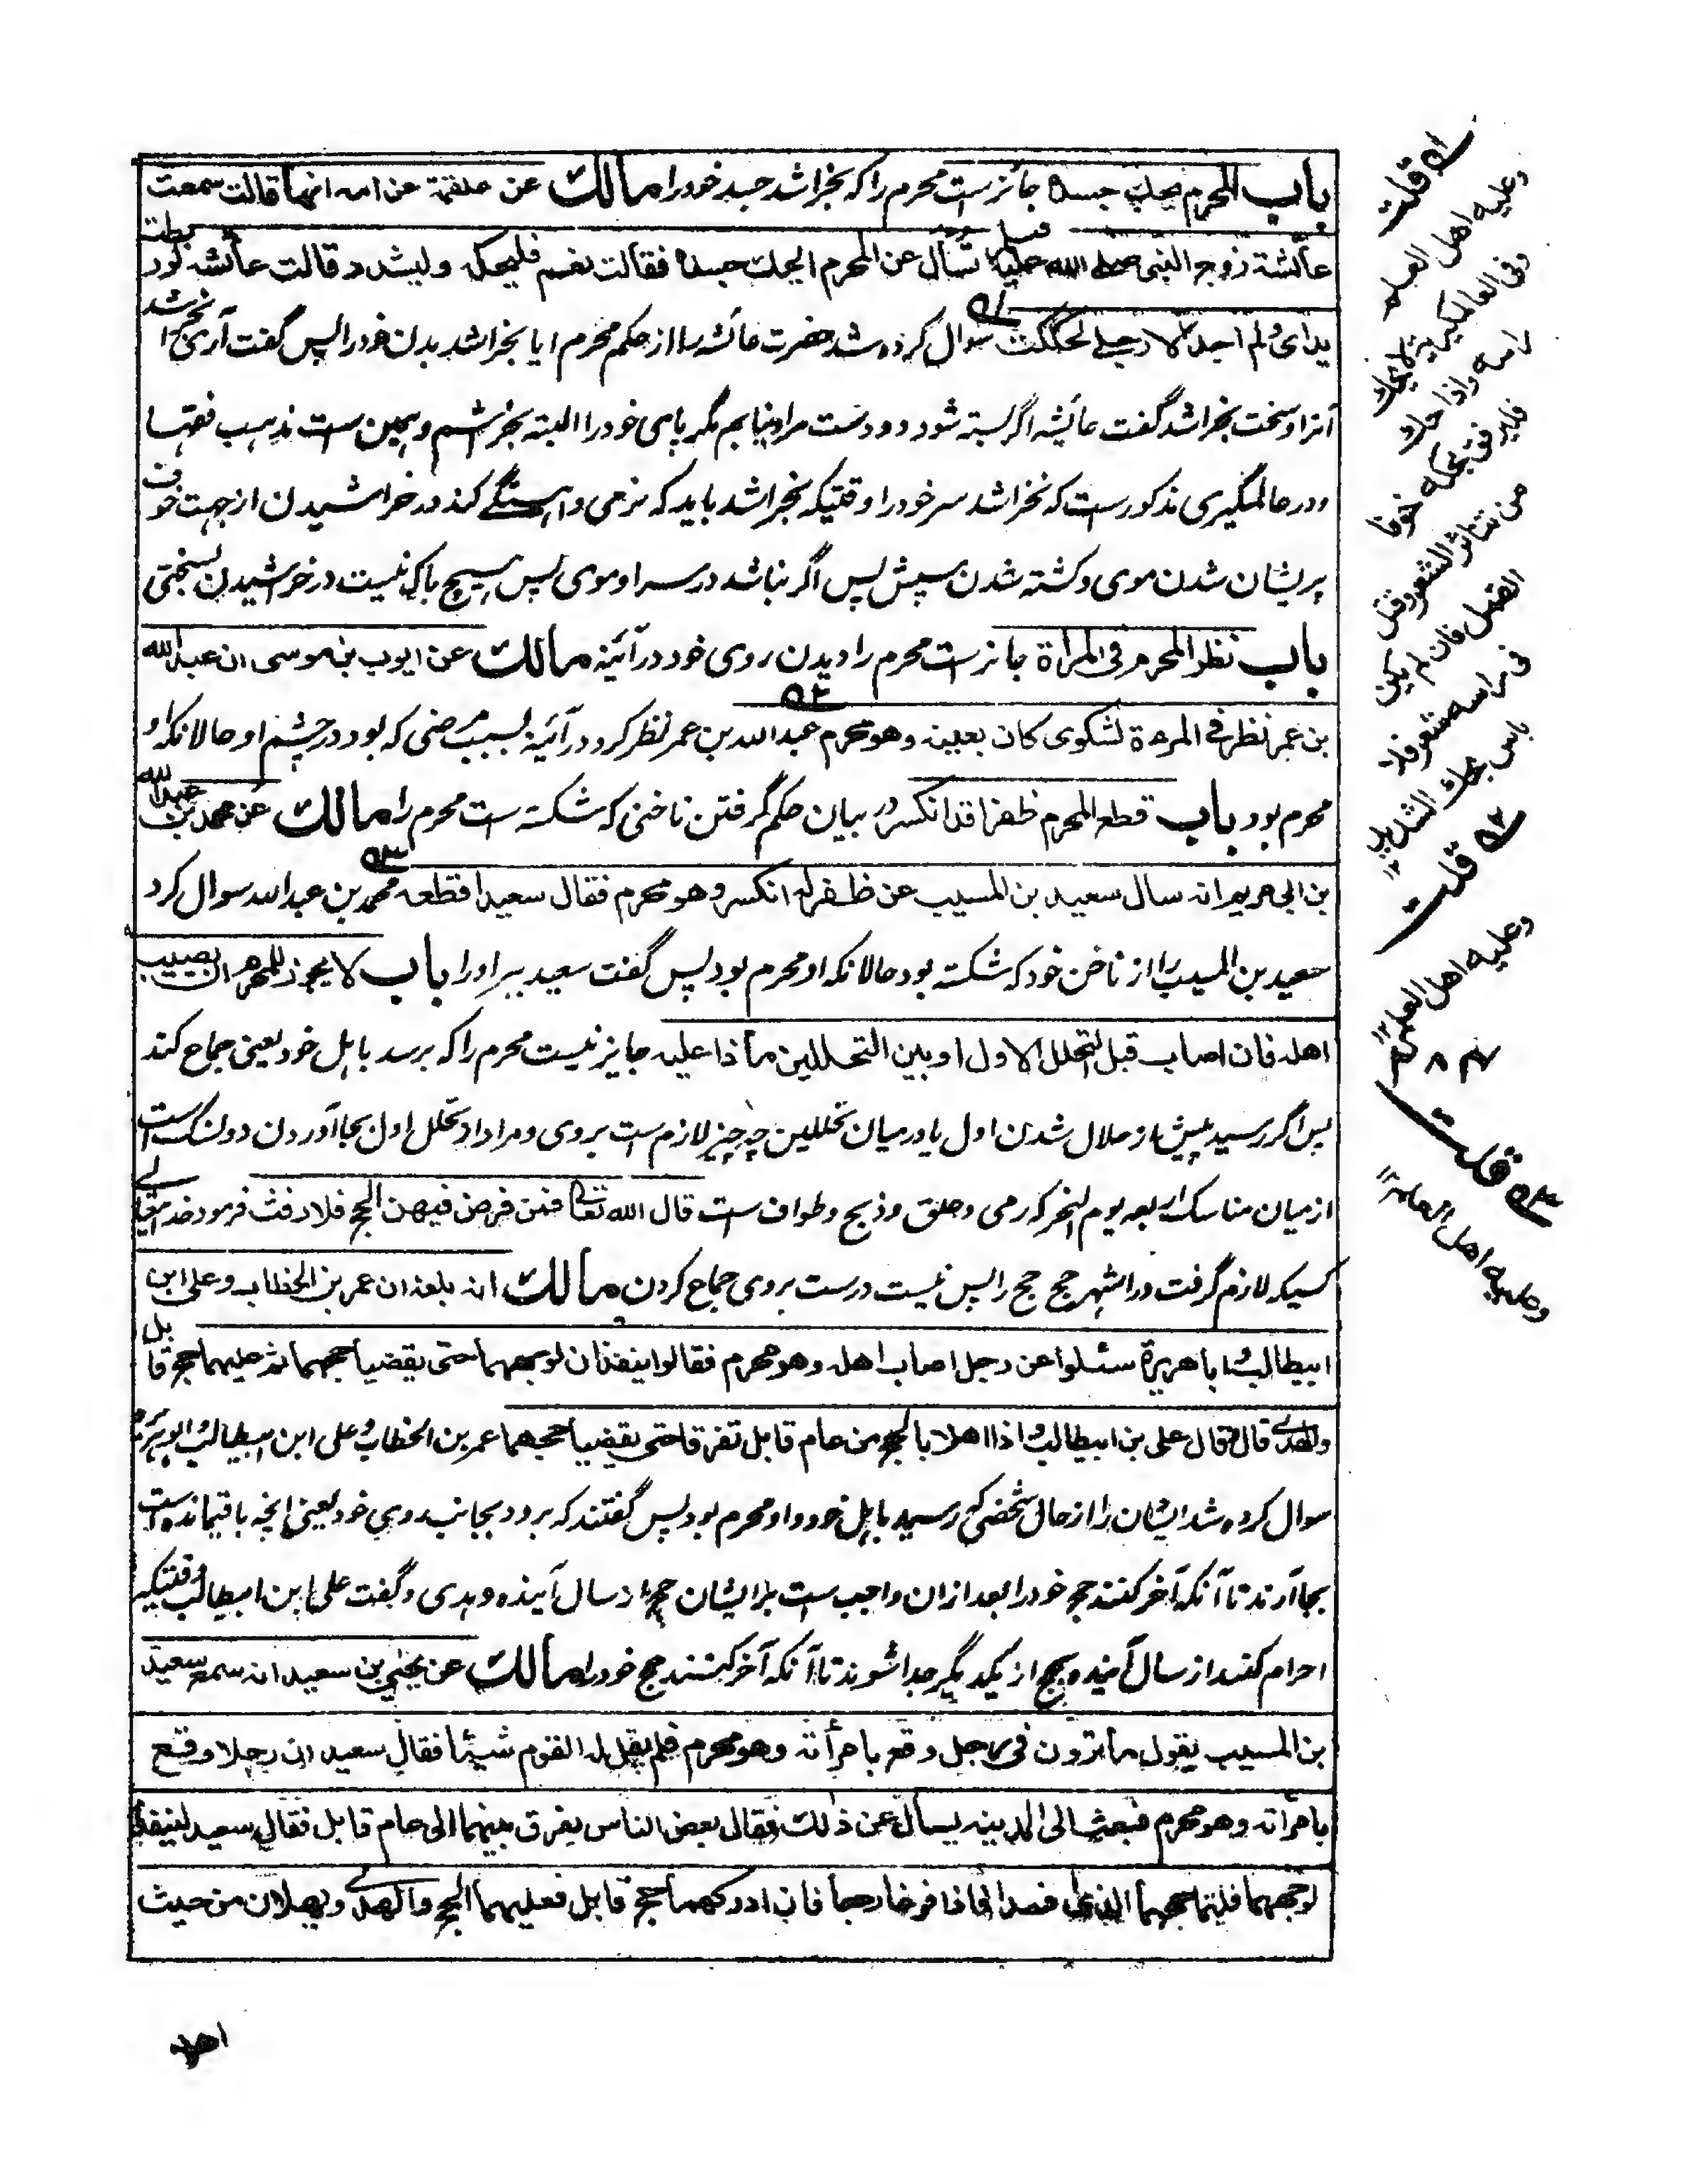 باب المحرم يحك جسده جائزست محرم را كه بخراشد جسد خود را مالك عن علقمة عن امه انها قالت سمعت
عائشة زوج النبى صلى الله عليه تسأل عن المحرم ايحك جسده فقالت نعم فليحكه وليشدد قالت عائشة لو ربطت
يداى ولم اجد الا رجلى لحككت سوال كرده شد حضرت عائشه را از حكم محرم ايا بخراشد بدن خود را پس گفت آرى بخراشد
آنرا و سخت بخراشد گفت عائشه اگر بسته شود دو دست مرا و نيابم مگر پاى خود را البته بخراشم و همين ست مذهب فقها
و در عالمگيرى مذكورست كه نخراشد سر خود را وقتيكه بخراشد بايد كه نرمى و اهستگے كند در خراشيدن از جهت خوف
پريشان شدن موى و كشته شدن سپش پس اگر نباشد در سر او موى پس هيچ باكى نيست در خراشيدن بسختى
باب نظر المحرم فى المرأة جائزست محرم را ديدن روى خود در آئينه مالك عن ايوب بن موسى ان عبد الله
بن عمر نظر فے المرءة لشكوى كان بعينه وهو محرم عبد الله بن عمر نظر كرد در آئينه بسبب مرضى كه بود در چشم او حالانكه او
محرم بود باب قطع المحرم ظفرا قد انكسر در بيان حكم گرفتن ناخنى كه شكسته ست محرم را مالك عن محمد بن عبد الله
بن ابى مريم انه سال سعيد بن المسيب عن ظفر له انكسر وهو محرم فقال سعيد اقطعه محمد بن عبد الله سوال كرد
سعيد بن المسيب را از ناخن خود كه شكسته بود حالانكه او محرم بود پس گفت سعيد ببر او را باب لا يجوز للمحرم ان يصيب
اهله فان اصاب قبل التحلل الاول او بين التحللين ماذا عليه جايز نيست محرم را كه برسد باهل خود يعنى جماع كند
پس اگر رسيد پيش از حلال شدن اول يا درميان تحللين چه چيز لازم ست بروى و مراد از تحلل اول بجا آوردن دو نسك است
از ميان مناسك اربعه يوم النحر كه رمى و حلق و ذبح و طواف ست قال الله تعالى فمن فرض فيهن الحج فلا رفث فرمود خداى تعالے
كسيكه لازم گرفت در اشهر حج حج را پس نيست درست بروى جماع كردن مالك انه بلغه ان عمر بن الخطاب وعلى ابن
ابيطالب وابا هريرة سئلوا عن رجل اصاب اهله وهو محرم فقالوا ينفذان لوجههما حتى يقضيا حجهما ثم عليهما حج قابل
والهدے قال وقال على بن ابيطالب واذا اهلا بالحج من عام قابل تفرقا حتى يقضيا حجهما عمر بن الخطاب و على ابن ابيطالب و ابو هريره
سوال كرده شد ايشان را از حال شخصى كه رسيد باهل خود و او محرم بود پس گفتند كه برود بجانب روى خود يعنى انچه باقيمانده ست
بجا آرند تا آنكه آخر كنند حج خود را بعد ازان واجب ست بر ايشان حج از سال آينده و هدى و گفت على ابن ابيطالب وقتيكه
احرام كنند از سال آينده بحج از يكديگر جدا شوند تا آنكه آخر كنند حج خود را مالك عن يحيى بن سعيد انه سمع سعيد
بن المسيب يقول ما ترون فى رجل وقع بامرأته وهو محرم فلم يقل له القوم شيئا فقال سعيد ان رجلا وقع
بامرأته وهو محرم فبعث الى المدينه يسأل عن ذلك فقال بعض الناس يفرق بينهما الى عام قابل فقال سعيد لينفذا
لوجههما فليتما حجهما الذى افسدا فاذا فرغا رجعا فان ادركهما حج قابل فعليهما الحج والهدى ويهلان من حيث
اهلا
۵۱ قلت
وعليه اهل العلم
وفى العالمكيرية لا يحك
راسه واذا حك
فليرفق بحكه خوفا
من تناثر الشعر وقتل
القمل فان لم يكن
فى راسه شعر فلا
باس بحك الشديد ۱۲
۵۲ قلت
وعليه اهل العلم ۱۲
۵۳ قلت
وعليه اهل العلم ۱۲